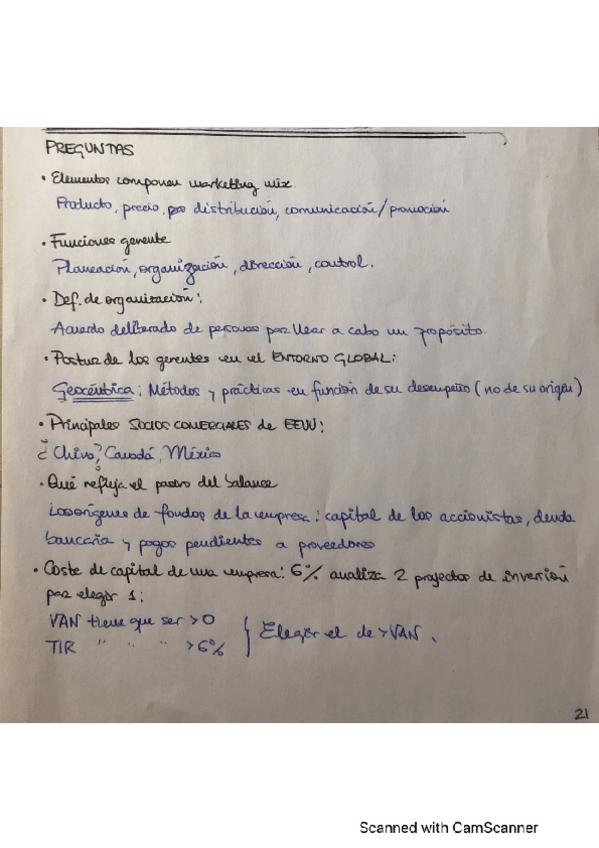 PREGUNTAS
• Elementos componen marketing mix.
Producto, precio, pro distribución, comunicación/promoción
• Funciones gerente
Planeación, organización, dirección, control.
• Def. de organización:
Acuerdo deliberado de personas par llevar a cabo un propósito.
• Postur de los gerentes en el ENTORNO GLOBAL:
Geocéntrica: Métodos y prácticas en función de su desempeño (no de su origen)
• Principales SOCIOS COMERCIALES de EEUU:
¿China? Canadá, México
• Qué refleja el pasivo del balance
Los orígenes de fondos de la empresa: capital de los accionistas, deuda
bancaria y pagos pendientes a proveedores
• Coste de capital de una empresa: 6% analiza 2 proyectos de inversión
par elegir 1:
VAN tiene que ser >0
TIR " " " >6%
} Elegir el de >VAN.
21
Scanned with CamScanner